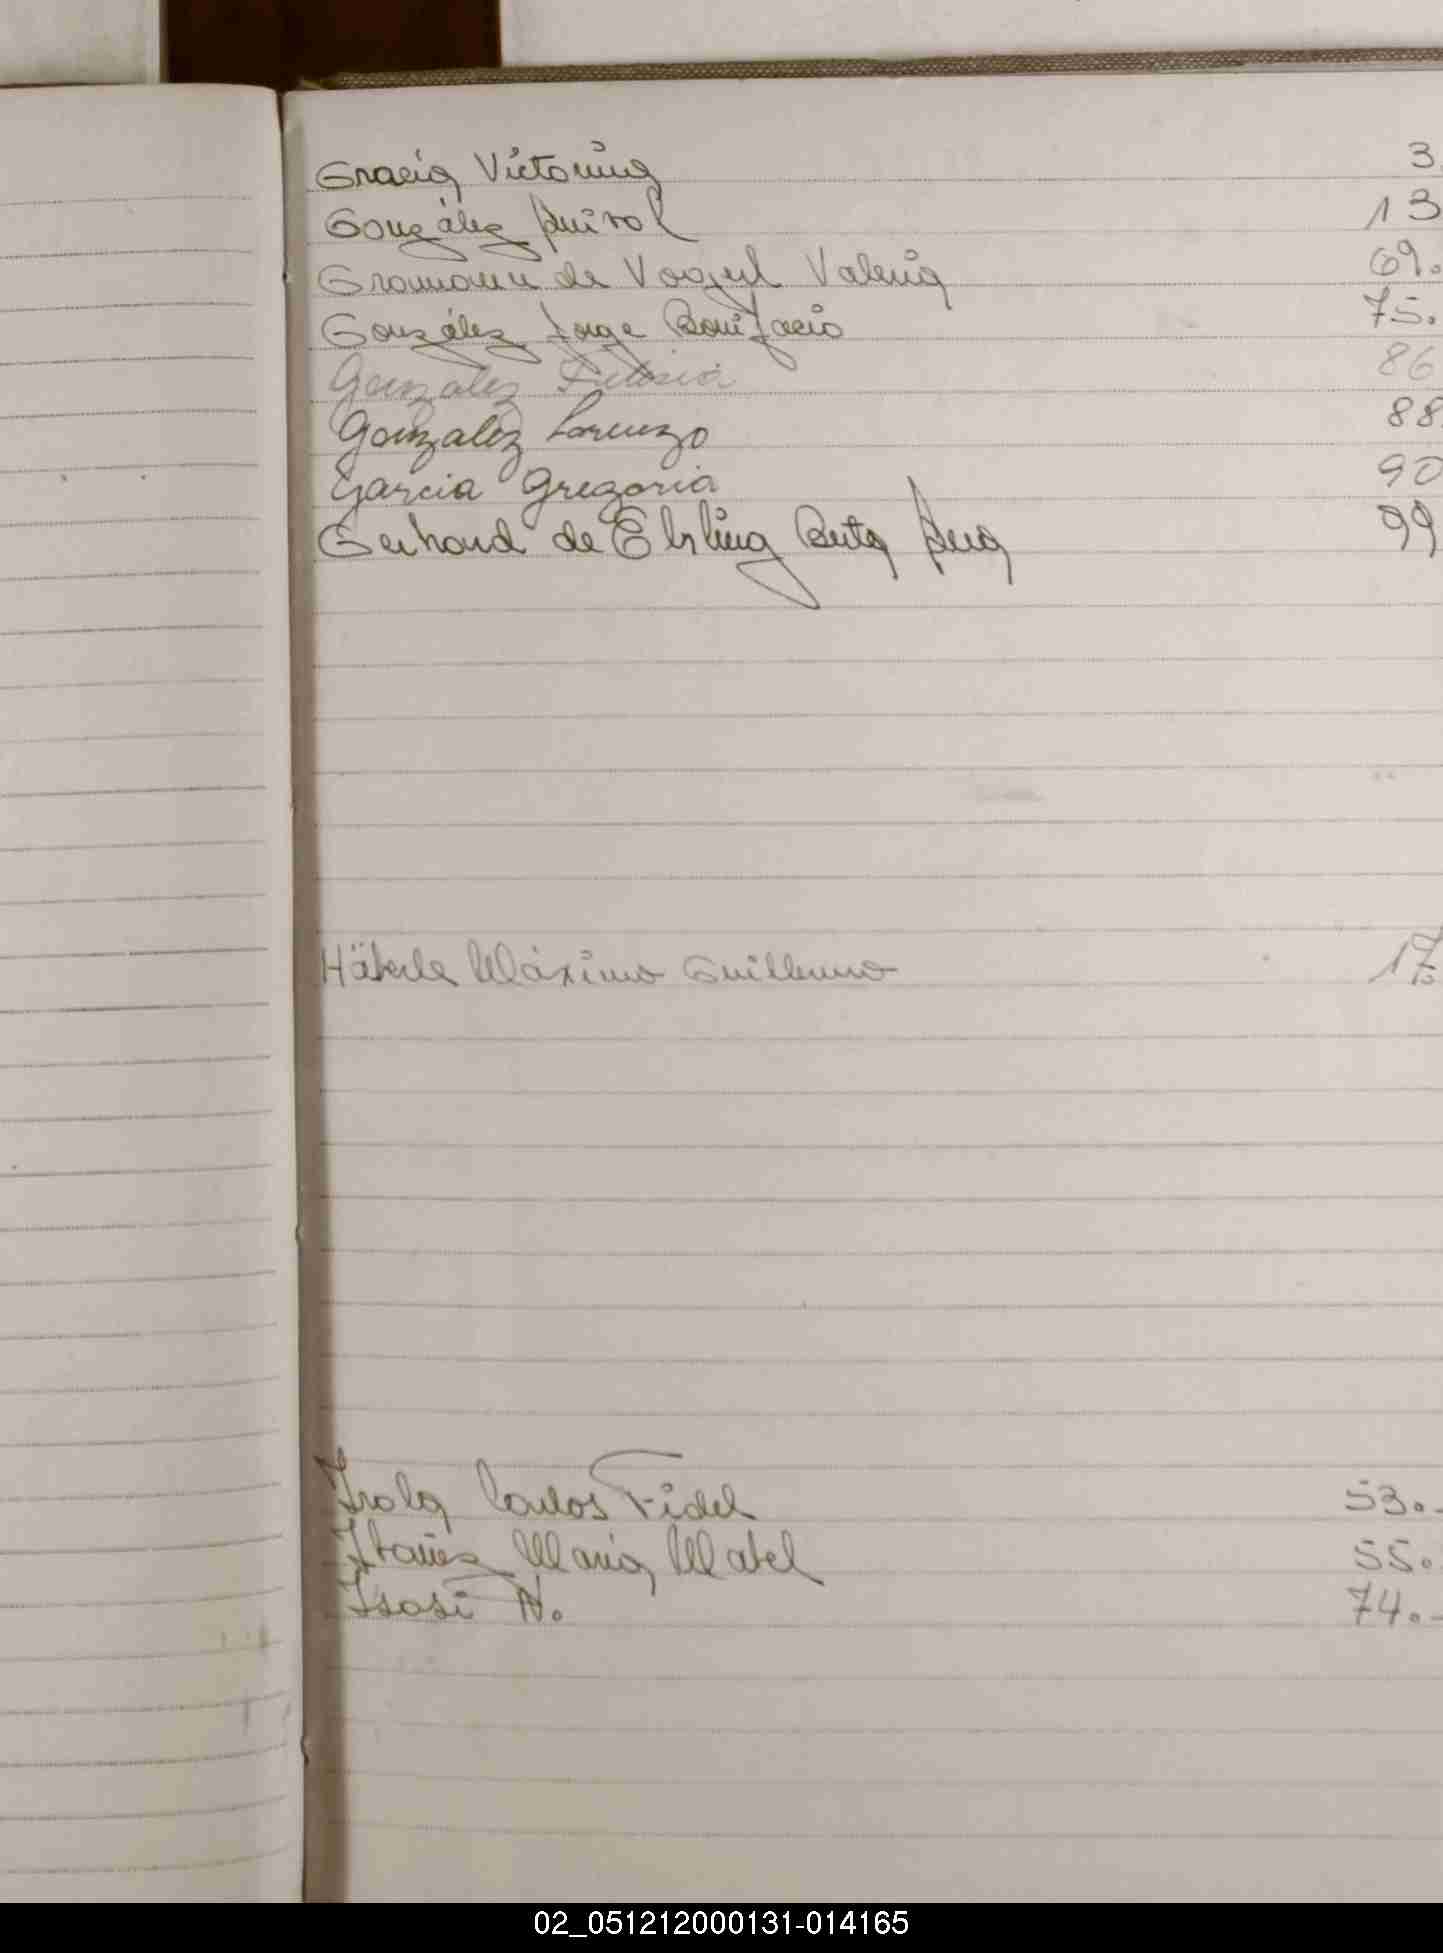 Gracia Victorina 3.
González Amirol 13
Gromann de Vogel Valeria 69.
González Jorge Bonifacio 75.
González 86
González Lorenzo 88.
Garcia Gregoria 90
Gerhard de Ebling Berta Ana 99
Häberle Máximo Guillermo 17.
Irala Carlos Fidel 53.-
Ibañez Maria Mabel 55.
Isasi N. 74.-
02_051212000131-014165